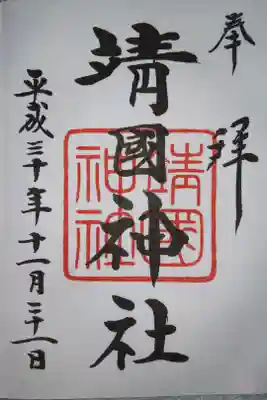 奉拝
靖國神社
靖國神社
平成三十年十一月二十一日